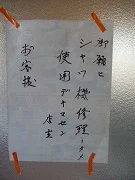 御願ヒ
シャワ機修理ノタメ
使用デキマセン
店主
お客様